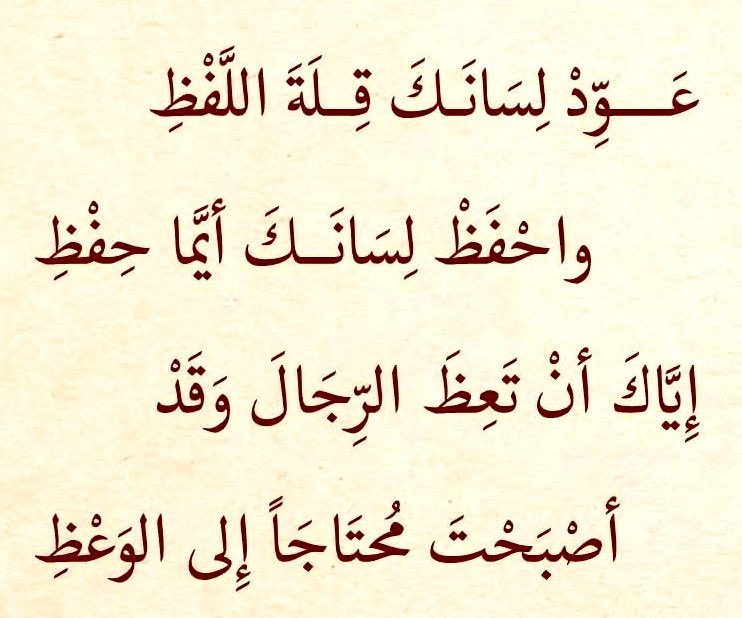 عَــوِّدْ لِسَانَـكَ قِـلَةَ اللَّفْظِ
واحْفَظْ لِسَانَــكَ أيَّما حِفْظِ
إِيَّاكَ أنْ تَعِظَ الرِّجَالَ وَقَدْ
أصْبَحْتَ مُحتَاجَاً إِلى الوَعْظِ